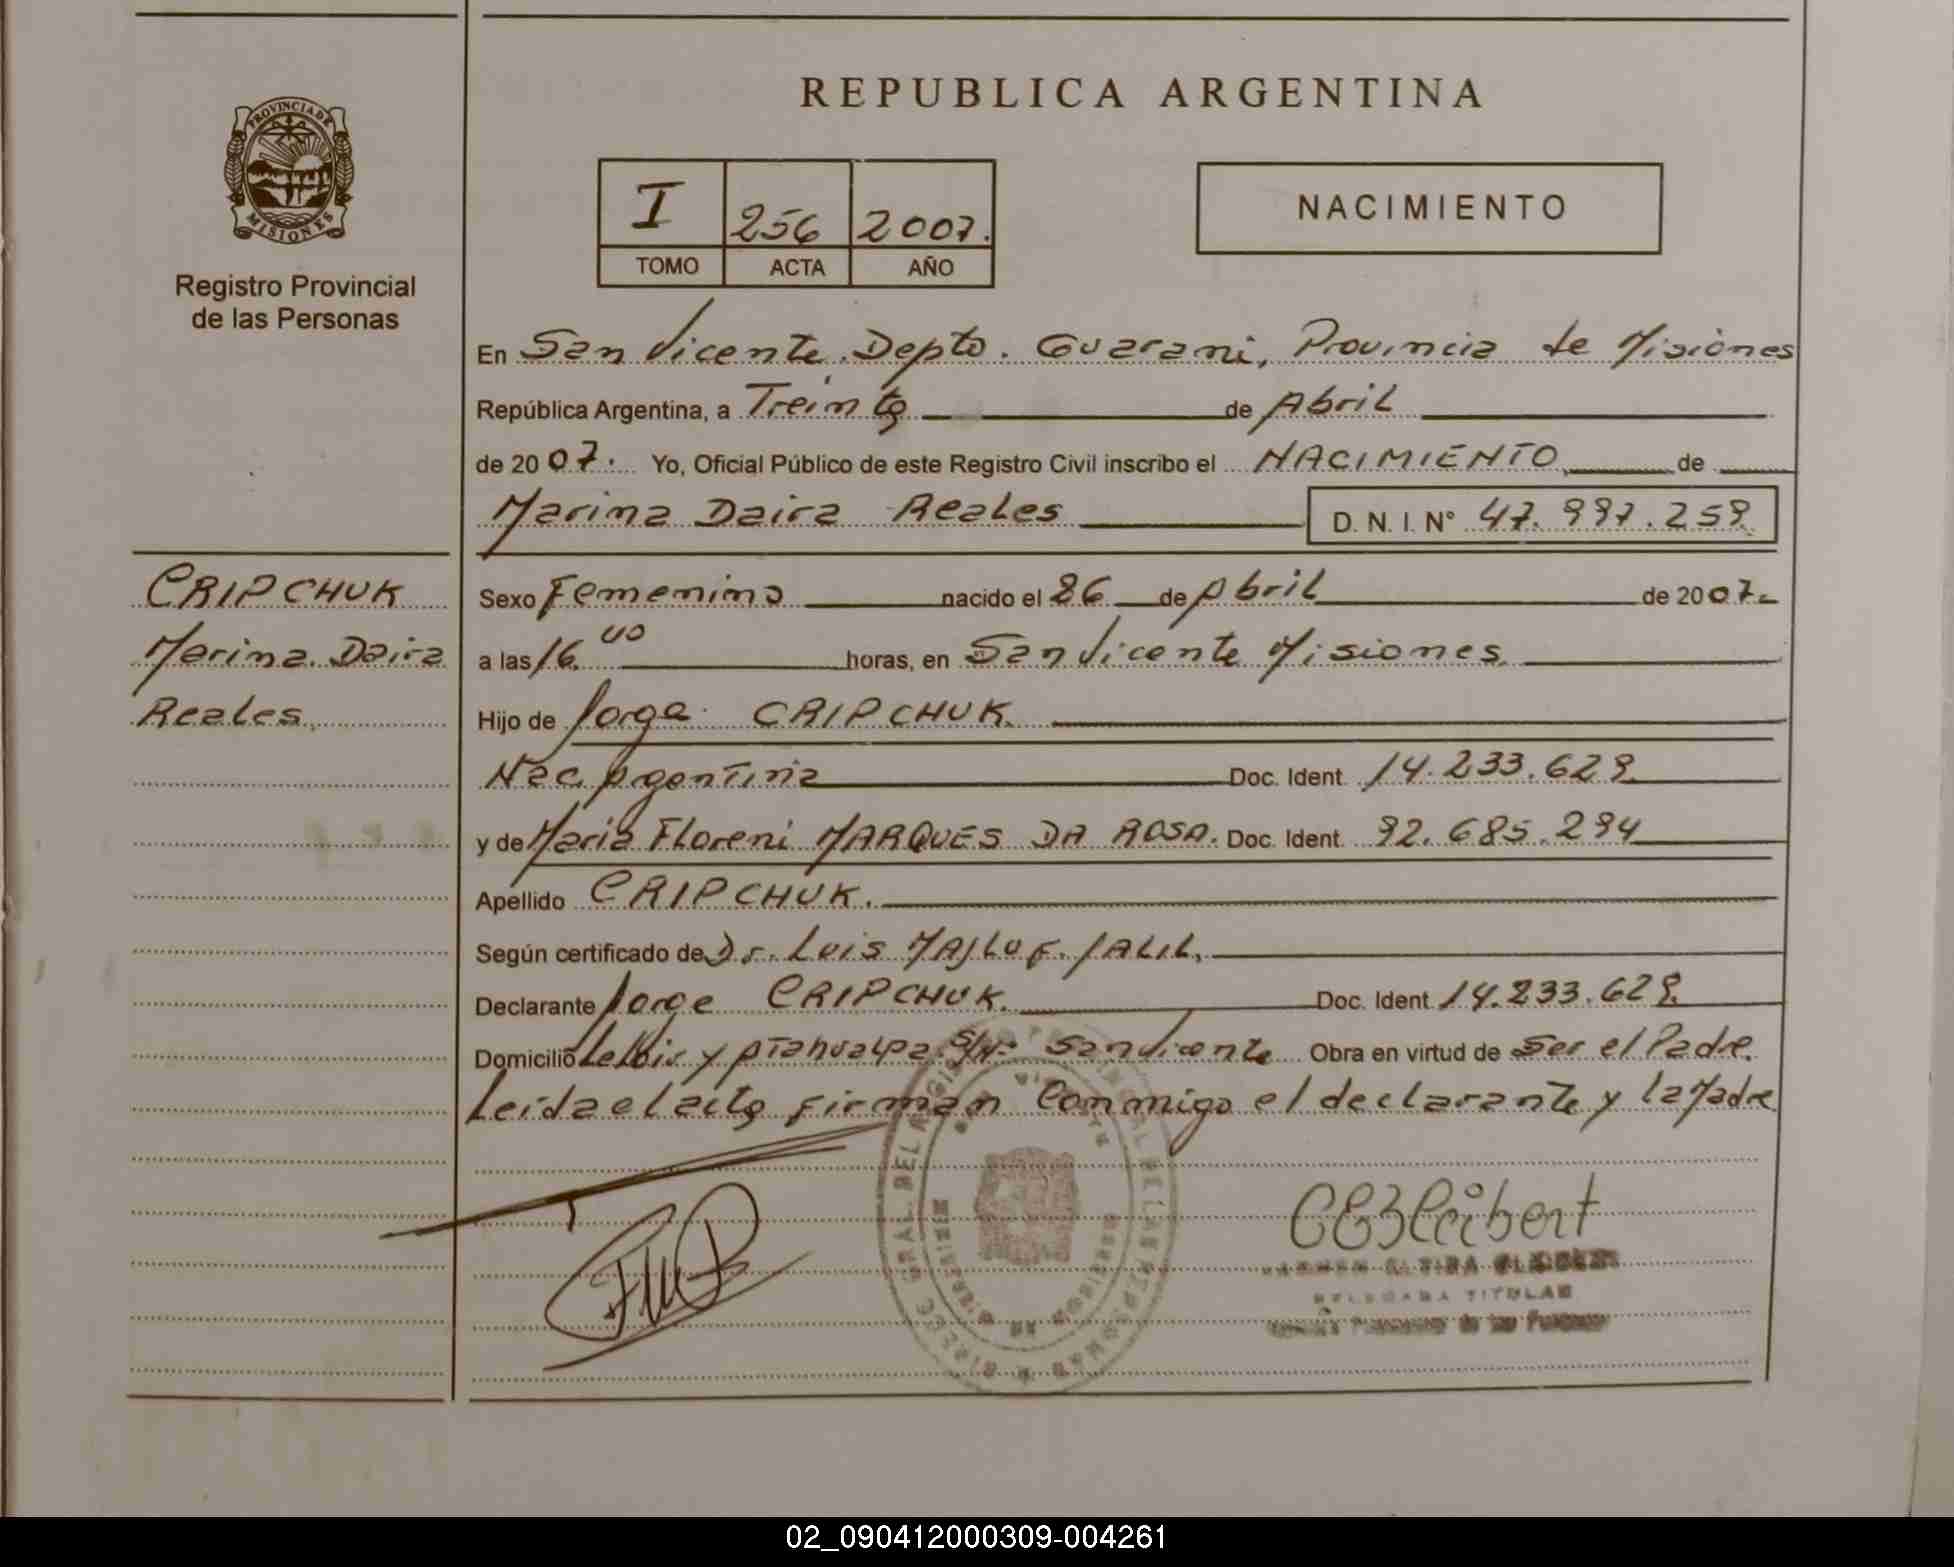 REPUBLICA ARGENTINA
PROVINCIA DE
MISIONES
Registro Provincial
de las Personas
I 256 2007.
TOMO ACTA AÑO
NACIMIENTO
En San Vicente. Depto. Guarani, Provincia de Misiones
República Argentina, a Treinta de Abril
de 2007. Yo, Oficial Público de este Registro Civil inscribo el NACIMIENTO de
Marina Daira Reales D. N. I. N° 47.997.259
CRIPCHUK
Marina Daira
Reales
Sexo Femenino nacido el 26 de Abril de 2007.
a las 16.00 horas, en San Vicente Misiones
Hijo de Jorge CRIPCHUK
Nac. Argentina Doc. Ident. 14.233.629
y de Maria Floreni MARQUES DA ROSA. Doc. Ident. 92.685.294
Apellido CRIPCHUK.
Según certificado de Dr. Luis MAJLUF JALIL,
Declarante Jorge CRIPCHUK. Doc. Ident. 14.233.629
Domicilio y Atahualpa S/N° San Vicente Obra en virtud de Ser el Padre.
Leida el acta firman Conmigo el declarante y la Madre
DELEGADA TITULAR
02_090412000309-004261